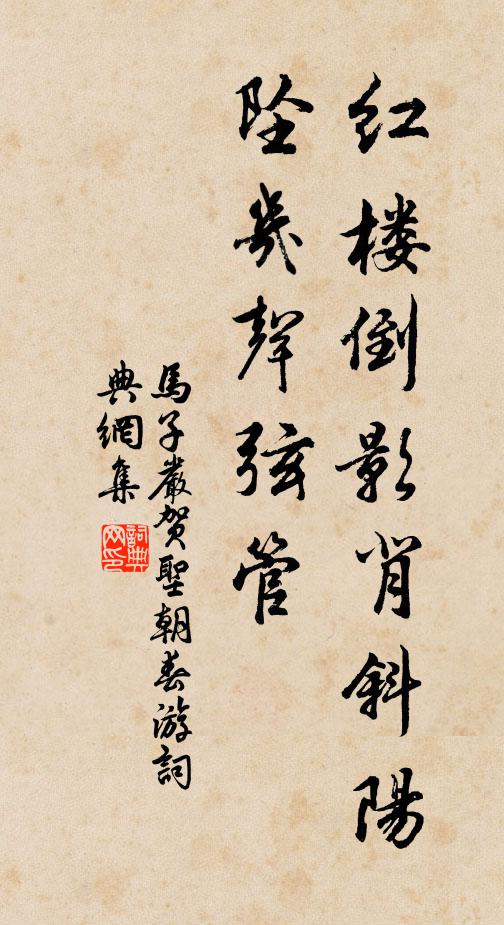 红楼倒影背斜陽
坠幾聲弦管
馬子嚴賀聖朝春游詞
典網集
詞典網印